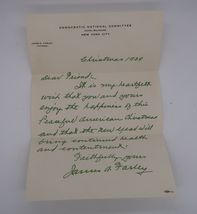 DEMOCRATIC NATIONAL COMMITTEE
HOTEL BILTMORE
NEW YORK CITY
JAMES A. FARLEY
CHAIRMAN
Christmas 1939
Dear Friend:
It is my heartfelt
wish that you and yours
enjoy the happiness of this
Peaceful American Christmas
and that the New Year will
bring continued health
and contentment.
Faithfully yours
James A Farley